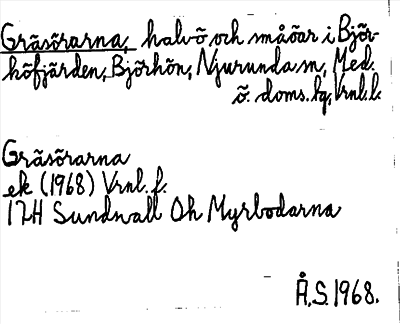 Gräsörarna, halvö och småöar i Björ-
köfjärden, Björkön, Njurunda sn, Med.
ö. doms.bg, Vrnl.l.
Gräsörarna
ek (1968) Vrnl.f.
17H Sundsvall Öh Myrbodarna
Å.S. 1968.